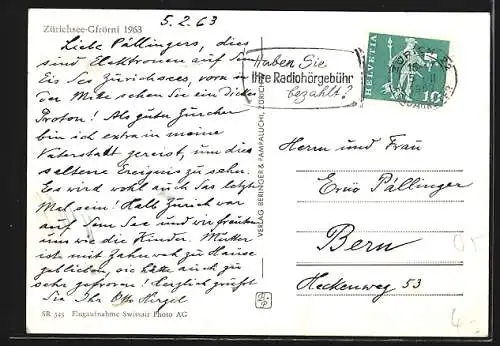 Zürichsee-Gfrörni 1963
5.2.63
Liebe Pällingers, dies
sind Elektronen auf dem
Eis des Zürichsees, vorn in
der Mitte sehen Sie ein Dickes
Proton! Als guter Zürcher
bin ich extra in meine
Vaterstadt gereist, um dies
seltene Ereignis zu sehn.
Es wird wohl auch das letzte
Mal sein! Halb Zürich war
auf dem See und wir freuten
uns wie die Kinder. Mutter
ist mit Zahnweh zu Hause
geblieben, sie hätte auch zu
sehr gefroren! Herzlich grüsst
Sie Ihr Otto
SR 345 Flugaufnahme Swissair Photo AG
VERLAG BERINGER & PAMPALUCHI, ZÜRICH
Haben Sie
Ihre Radiohörgebühr
bezahlt?
HELVETIA
10
Herrn und Frau
Pällinger
Bern
Heckenweg 53